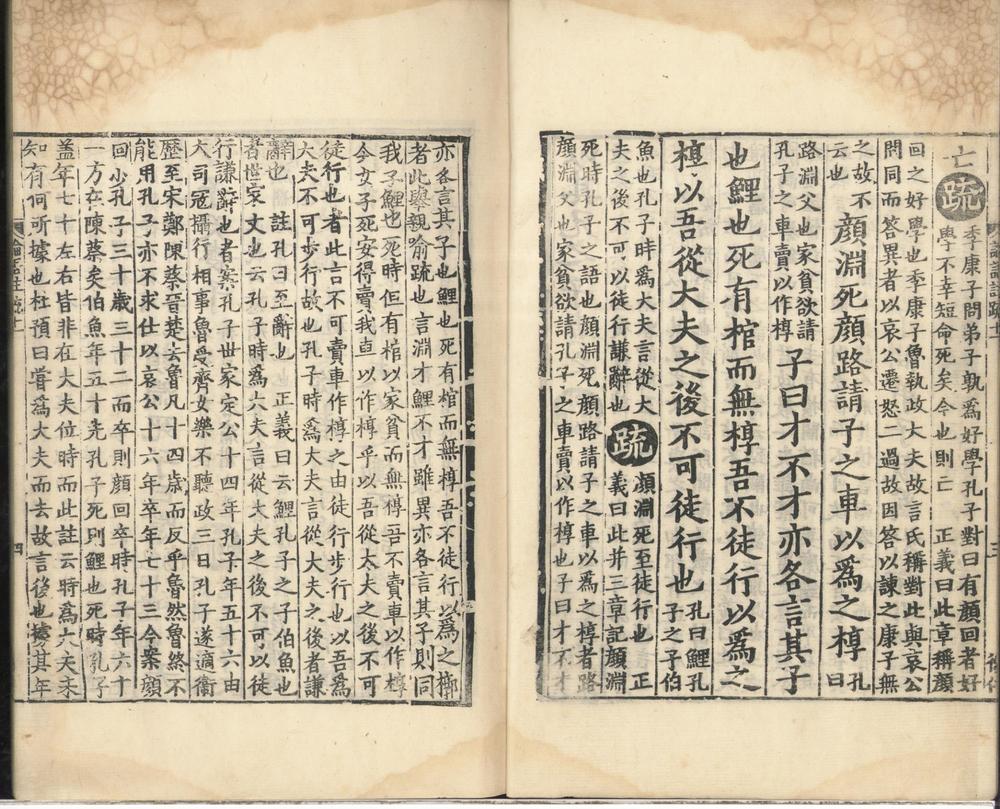 亡疏季康子問弟子孰爲好學孔子對曰有顏回者好
學不幸短命死矣今也則亡 正義曰此章稱顏
回之好學也季康子魯執政大夫故言氏稱對此與哀公
問同而答異者以哀公遷怒二過故因答以諫之康子無
之故不
云也
顏淵死顏路請子之車以爲之椁
孔曰
路淵父也家貧欲請
孔子之車賣以作椁
子曰才不才亦各言其子
也鯉也死有棺而無椁吾不徒行以爲之
椁以吾從大夫之後不可徒行也
孔曰鯉孔
子之子伯
魚也孔子時爲大夫言從大
夫之後不可以徒行謙辭也
疏
顏淵死至徒行也 正
義曰此并三章記顏淵
死時孔子之語也顏淵死顏路請子之車以爲之椁者路
顏淵父也家貧欲請孔子之車賣以作椁也子曰才不才
亦各言其子也鯉也死有棺而無椁吾不徒行以爲之槨
者此舉親喻疏也言淵才鯉不才雖異亦各言其子則同
我子鯉也死時但有棺以家貧而無椁吾不賣車以作椁
今女子死安得賣我車以作椁乎以吾從大夫之後不可
徒行也者此言不可賣車作椁之由徒行步行也以吾爲
大夫不可步行故也孔子時爲大夫言從大夫之後者謙
辭也 註孔曰至辭也 正義曰云鯉孔子之子伯魚也
者世家文也云孔子時爲大夫言從大夫之後不可以徒
行謙辭也者案孔子世家定公十四年孔子年五十六由
大司寇攝行相事魯受齊女樂不聽政三日孔子遂適衞
歷至宋鄭陳蔡晉楚去魯凡十四歳而反乎魯然魯終不
能用孔子亦不求仕以哀公十六年卒年七十三今案顏
回少孔子三十歲三十二而卒則顏回卒時孔子年六十
一方在陳蔡矣伯魚年五十先孔子死則鯉也死時孔子
蓋年七十左右皆非在大夫位時而此註云時爲大夫未
知有何所據也杜預曰嘗爲大夫而去故言後也據其年
四